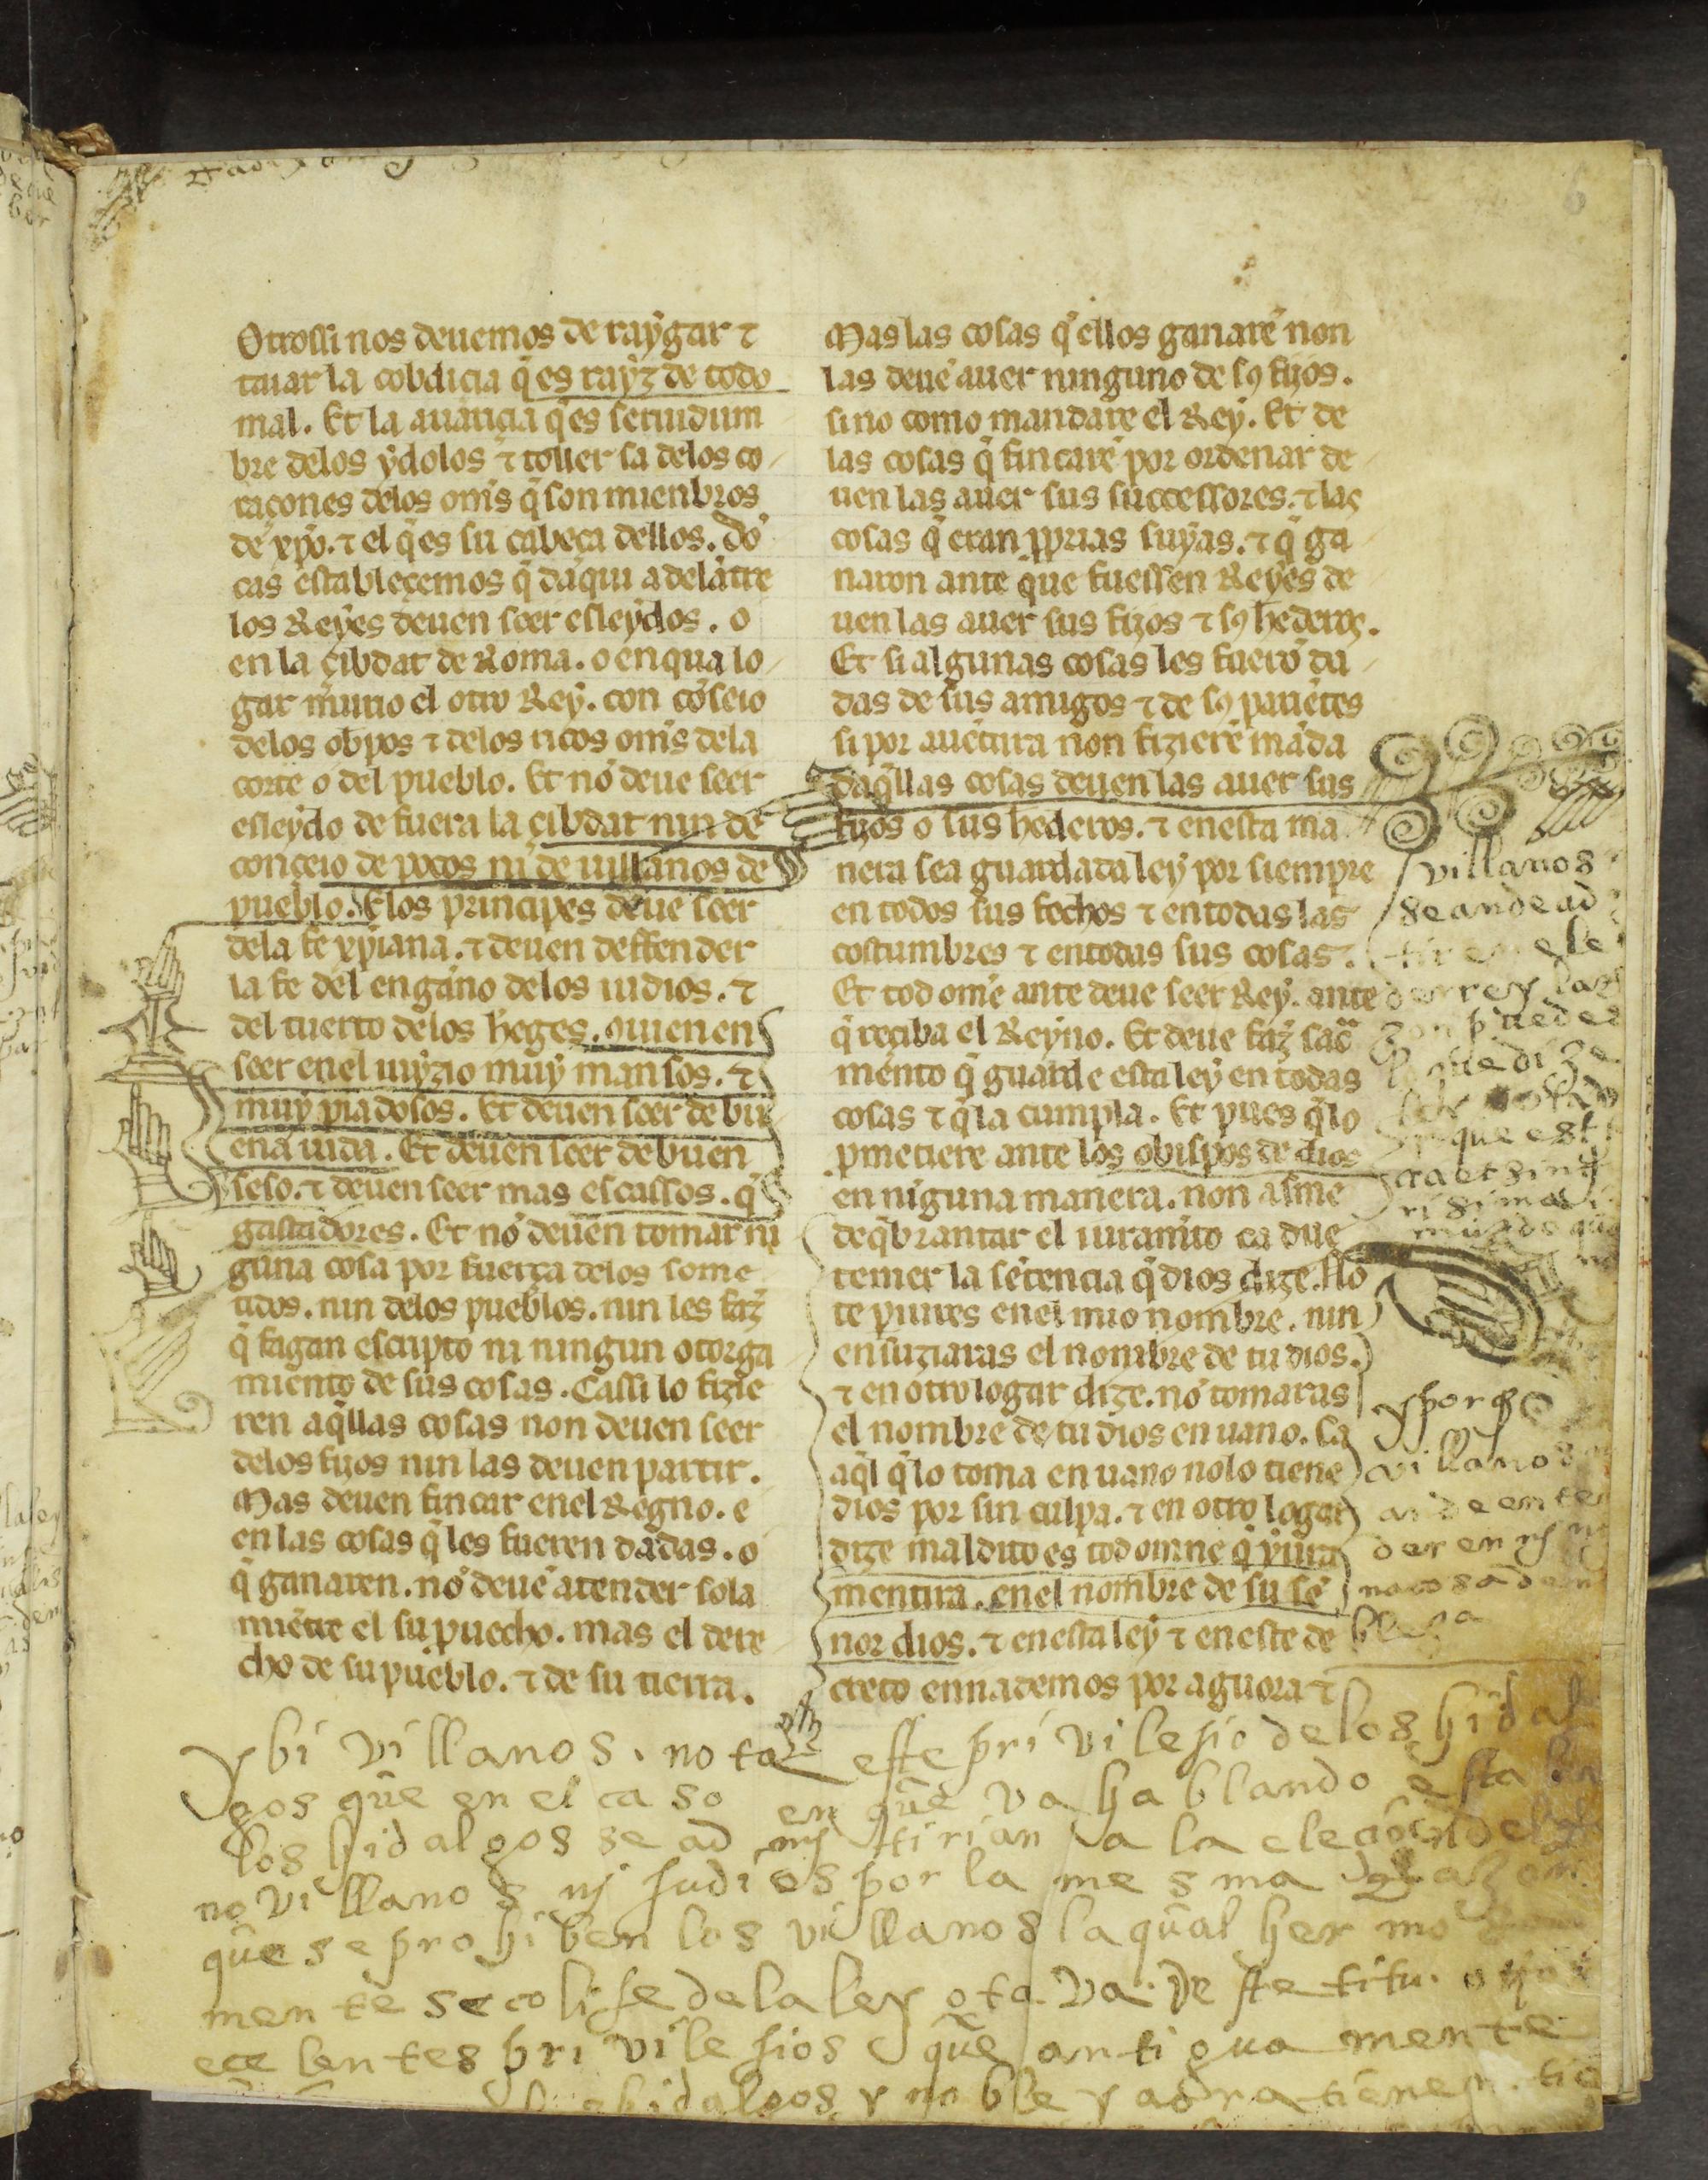 Otrossi nos deuemos de raygar ⁊
tirar la cobdicia q̄ es rayz de todo
mal. Et la auaricia q̄ es seruidum
bre delos ydolos ⁊ toller la delos co
raçones delos om̄s q̄ son mienbros
de xp̄o. ⁊ el q̄ es su cabeça dellos. Dō
cas establecemos q̄ daqui adelātre
los Reyes deuen seer esleydos. o
en la çibdat de Roma. o en qua lo
gar murio el otro Rey. con cōseio
delos obpos ⁊ delos ricos om̄s dela
corte o del pueblo. Et nō deue seer
esleydo de fuera la çibdat nin de
conçeio de pocos ni de uillanos de
pueblo. Elos principes deue seer
dela fe xp̄iana. ⁊ deuen deffender
la fe del engāno delos iudios. ⁊
del tuerto delos hereges.
seer enel iuyzio muy mansos. ⁊
muy piadosos. Et deuen seer de bu
ena uida. Et deuen seer de buen
seso. ⁊ deuen seer mas escassos. q̄
gastadores. Et nō deuen tomar ni
guna cosa por fuerça delos some
tidos. nin delos pueblos. nin les faz̄
q̄ fagan escripto ni ningun otorga
miento de sus cosas. Ca ssi lo fizie
ren aq̄llas cosas non deuen seer
delos fijos nin las deuen partir.
Mas deuen fincar enel Regno. e
en las cosas q̄ les fueren dadas. o
q̄ ganaren. nō deuē atender sola
miētre el su puecho. mas el dere
cho de su pueblo. ⁊ de su tierra.
Mas las cosas q̄ ellos ganarē non
las deuē auer ninguno de sꝯ fijos.
sino como mandare el Rey. Et de
las cosas q̄ fincarē por ordenar de
uen las auer sus successores. ⁊ las
cosas q̄ eran pprias suyas. ⁊ q̄ ga
naron ante que fuessen Reyes de
uen las auer sus fijos ⁊ sꝯ hederos.
Et si algunas cosas les fuerō da
das de sus amigos ⁊ de sꝯ pariētes
si por auētura non fizierē māda
daq̄llas cosas deuen las auer sus
fijos o sus hederos. ⁊ en esta ma
nera sea guardada ley por siempre
en todos sus fechos ⁊ en todas las
costumbres ⁊ en todas sus cosas.
Et tod ome ante deue seer Rey. ante
q̄ reçiba el Reyno. Et deue faz̄ sac̄ͣ
mento q̄ guarde esta ley en todas
cosas ⁊ q̄ la cumpla. Et pues q̄ lo
pmetiere ante los obispos de dios
en niguna manera. non asme
de q̄brantar el iuramīto ca due
temer la sētencia q̄ dios dize. Nō
te piures enel mio nombre. nin
ensuziaras el nombre de tu dios.
⁊ en otro logar dize. nō tomaras
el nombre de tu dios en uano. Ca
aq̄l q̄ lo toma en uano no lo tiene
dios por sin culpa. ⁊ en otro logar
dize maldito es tod omne q̄ yura
mentira. enel nombre de su sē
nor dios. ⁊ en esta ley ⁊ en este de
creto ennademos por aguora ⁊
villanos
se an de ad
tir en ele
de rrey
puede
que dize
que est
y por q̄
villanos
an de ente
der en nj
na cosa de
bleza
y bi villanos. nota este privilesio delos hidal
gos que en el caso en que va hablando esta
los hidalgos se admjtirian a la elecion del
no villanos nj judios por la mesma
que se prohiben los villanos la qual hermo
mente se colije dela ley otava. deste titu.
ecelentes privilesios que antigua mente
hidalgos y noble y aora tienen.